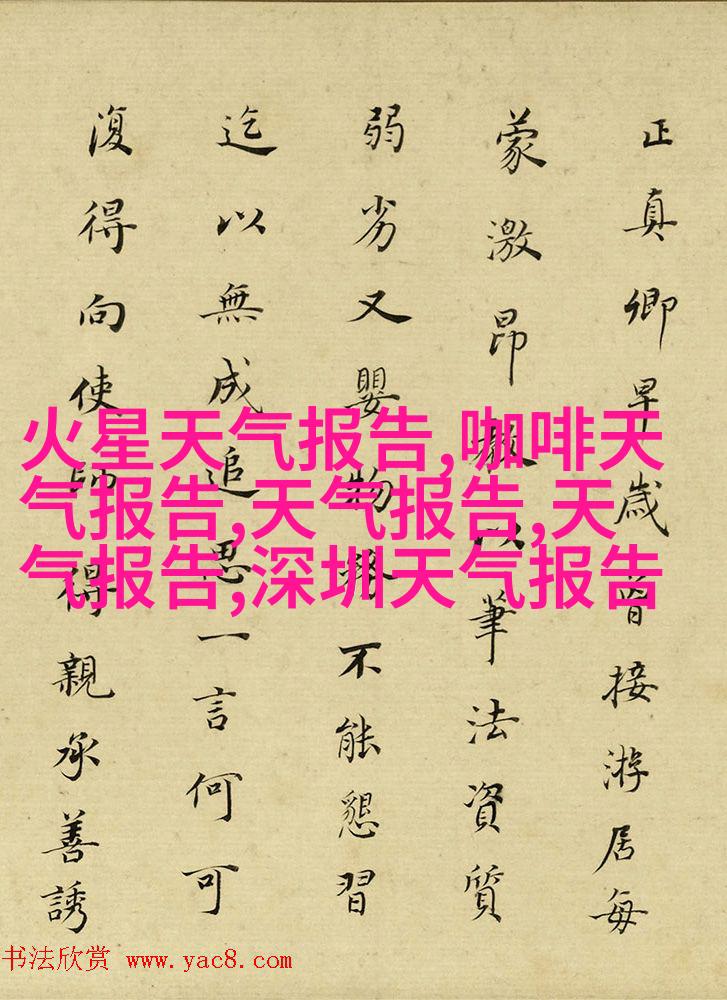 正真卿早歲曾接游居每
蒙激昂教以筆法資質
弱劣又嬰物務不能懇習
迄以無成追思一言何可
復得向使師得親承善誘
火星天气报告,咖啡天
气报告,天气报告,天
气报告,深圳天气报告
书法欣赏 www.yac8.com